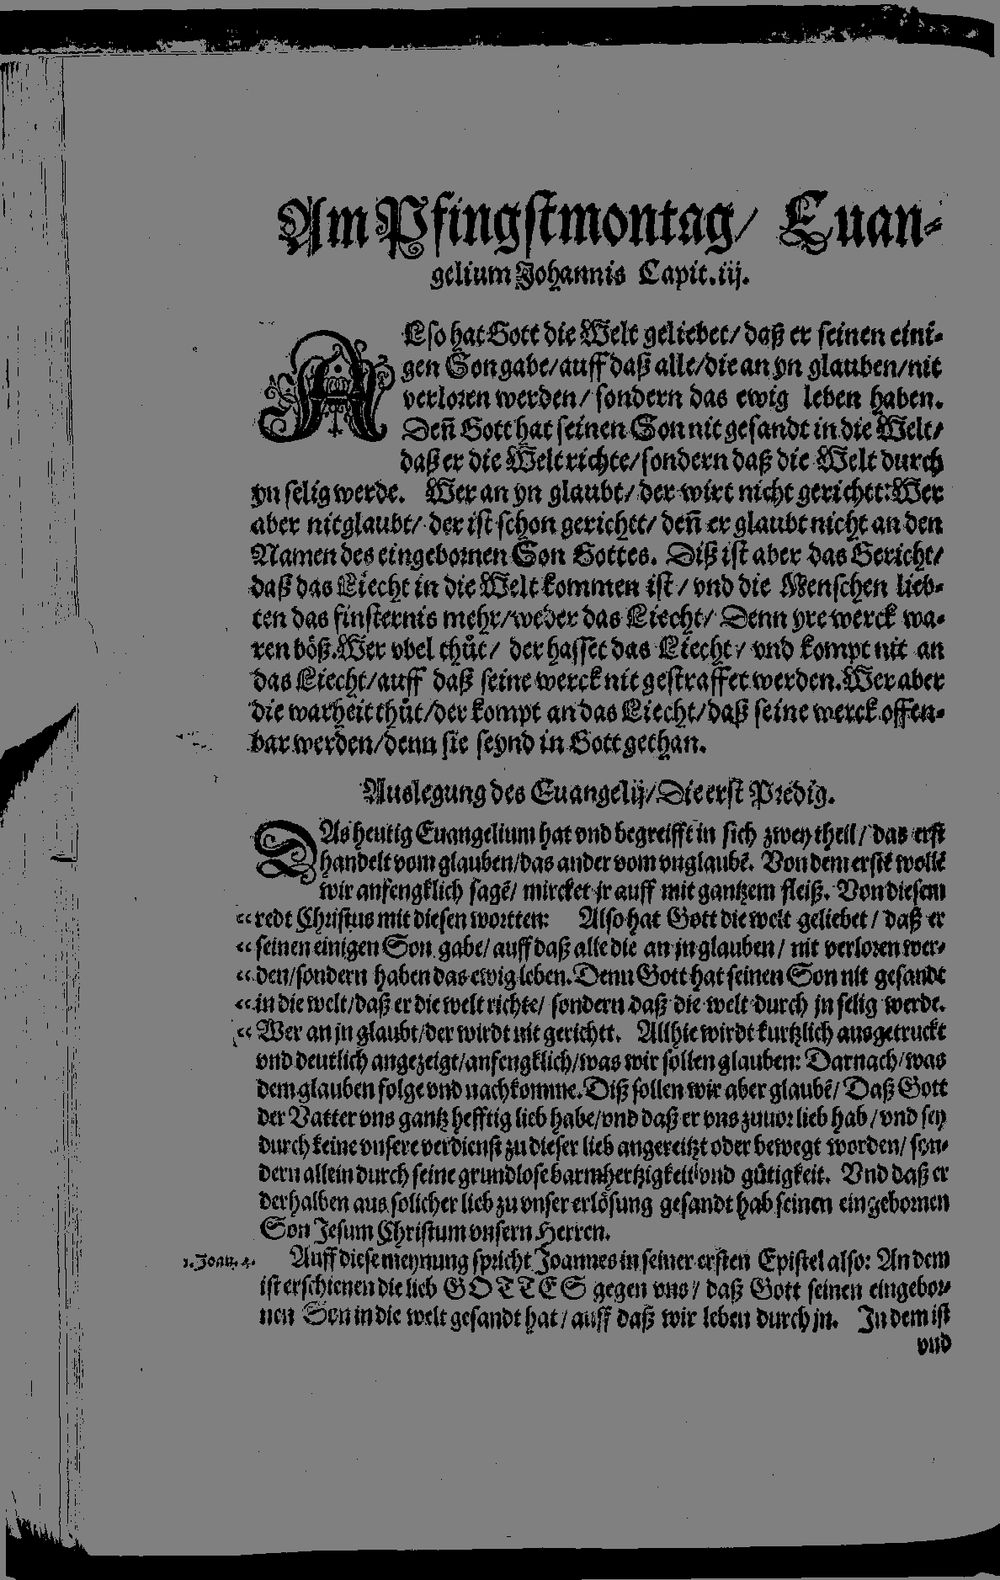 Am Pfingstmontag/ Euan-
gelium Johannis Capit. iij.
ALso hat Gott die Welt geliebet/ daß er seinen eini-
gen Son gabe/ auff daß alle/ die an yn glauben/ nit
verloren werden/ sondern das ewig leben haben.
Deñ Gott hat seinen Son nit gesandt in die Welt/
daß er die Welt richte/ sondern daß die Welt durch
yn selig werde. Wer an yn glaubt/ der wirt nicht gerichtt: Wer
aber nit glaubt/ der ist schon gerichtt/ deñ er glaubt nicht an den
Namen des eingebornen Son Gottes. Diß ist aber das Gericht/
daß das Liecht in die Welt kommen ist/ vnd die Menschen lieb-
ten das finsternis mehr/ weder das Liecht/ Denn yre werck wa-
ren böß. Wer vbel thůt/ der hasset das Liecht/ vnd kompt nit an
das Liecht/ auff daß seine werck nit gestraffet werden. Wer aber
die warheit thůt/ der kompt an das Liecht/ daß seine werck offen-
bar werden/ denn sie seynd in Gott gethan.
Auslegung des Euangelij/ Die erst Predig.
DAs heutig Euangelium hat vnd begreifft in sich zwey theil/ das erst
handelt vom glauben/ das ander vom vnglaubẽ. Von dem erstẽ wollẽ
wir anfengklich sagẽ/ mircket jr auff mit gantzem fleiß. Von diesem
“ redt Christus mit diesen wortten: Also hat Gott die welt geliebet/ daß er
“ seinen einigen Son gabe/ auff daß alle die an jn glauben/ nit verloren wer-
“ den/ sondern haben das ewig leben. Denn Gott hat seinen Son nit gesandt
“ in die welt/ daß er die welt richte/ sondern daß die welt durch jn selig werde.
“ Wer an jn glaubt/ der wirdt nit gerichtt. Allhie wirdt kurtzlich ausgetruckt
vnd deutlich angezeigt/ anfengklich/ was wir sollen glauben: Darnach/ was
dem glauben folge vnd nachkomme. Diß sollen wir aber glaubẽ/ Daß Gott
der Vatter vns gantz hefftig lieb habe/ vnd daß er vns zuuor lieb hab/ vnd sey
durch keine vnsere verdienst zu dieser lieb angereitzt oder bewegt worden/ son-
dern allein durch seine grundlose barmhertzigkeit vnd gůtigkeit. Vnd daß er
derhalben aus solicher lieb zu vnser erlösung gesandt hab seinen eingebornen
Son Jesum Christum vnsern Herren.
1. Joan. 4. Auff diese meynung spricht Joannes in seiner ersten Epistel also: An dem
ist erschienen die lieb GOTTES gegen vns/ daß Gott seinen eingebor-
nen Son in die welt gesandt hat/ auff daß wir leben durch jn. In dem ist
vnd